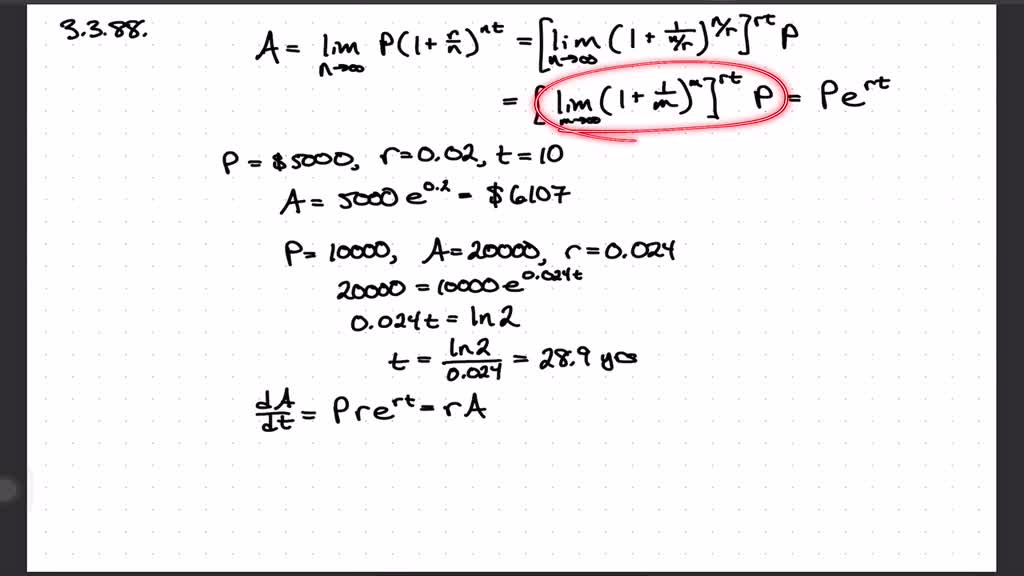 3.3.88.
A = lim n→∞ P(1 + r/n)^nt = [lim n→∞ (1 + 1/(n/r))^n/r]^rt P
= [lim m→∞ (1 + 1/m)^m]^rt P = Pe^rt
P = $5000, r = 0.02, t = 10
A = 5000 e^0.2 = $6107
P = 10000, A = 20000, r = 0.024
20000 = 10000 e^0.024t
0.024t = ln 2
t = ln 2/0.024 = 28.9 yrs
dA/dt = Pre^rt = rA